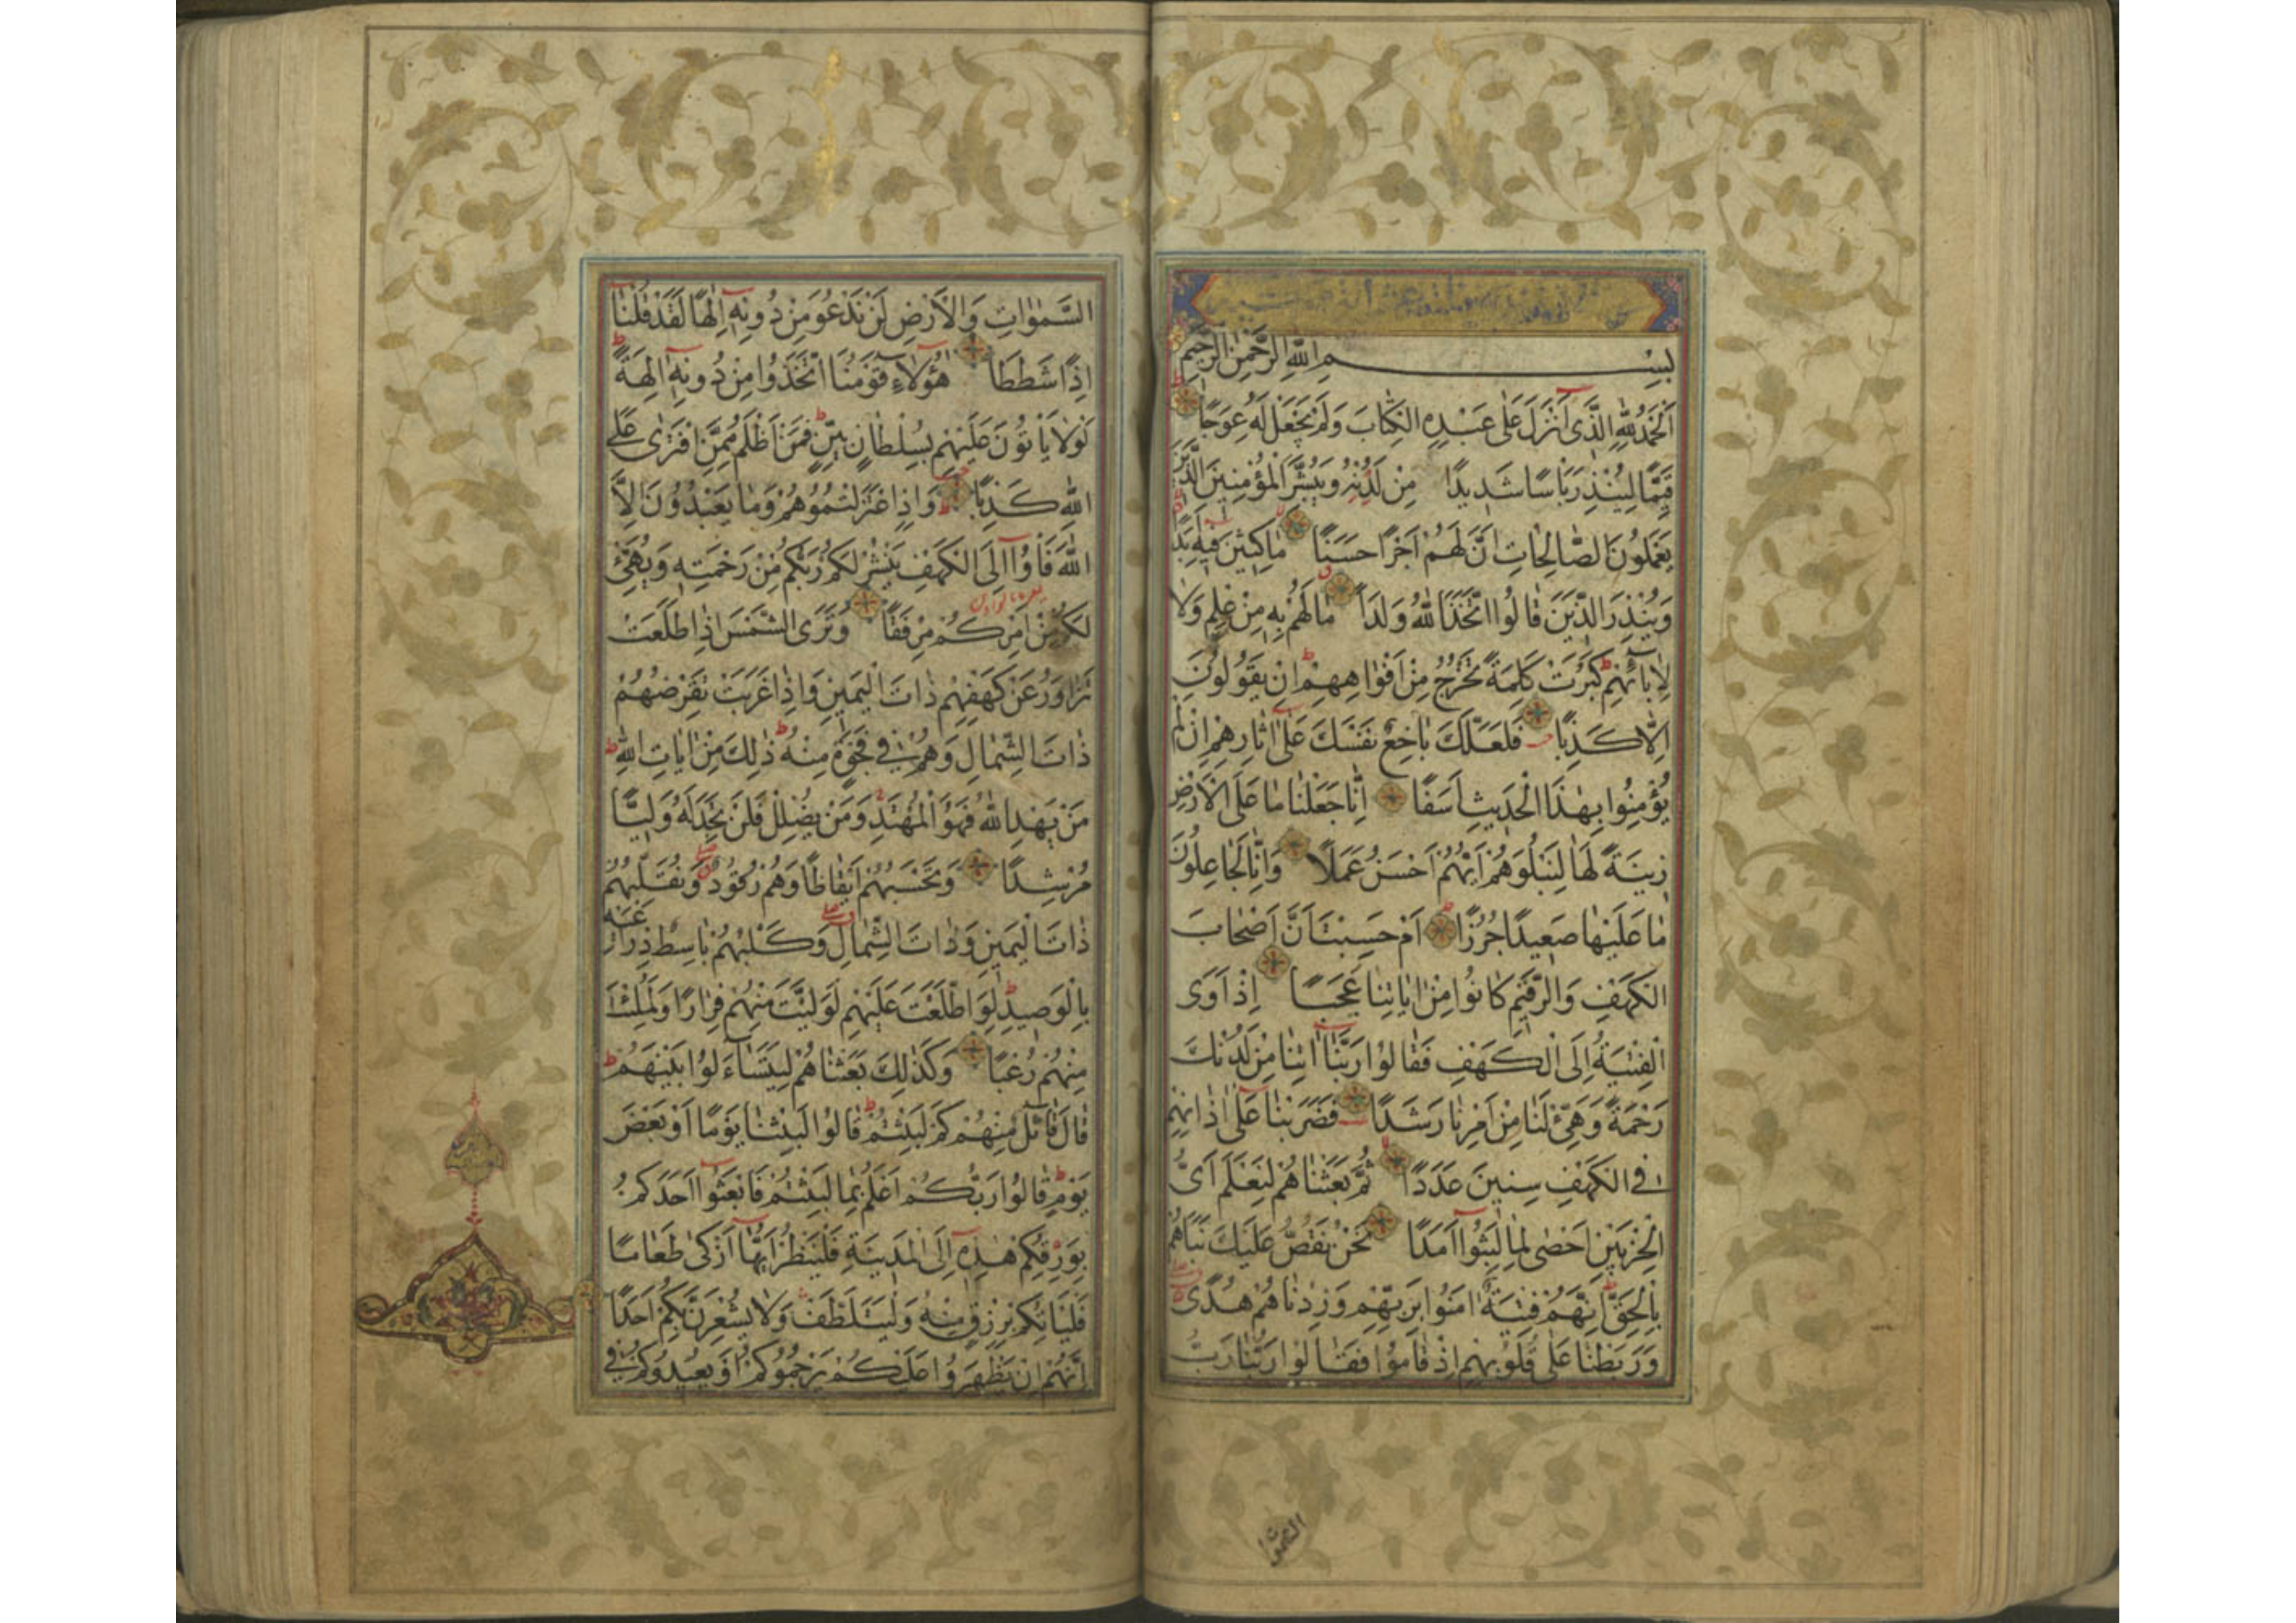 بِسْمِ اللّٰهِ الرَّحْمٰنِ الرَّحِيمِ
اَلْحَمْدُ لِلّٰهِ الَّذِي اَنْزَلَ عَلٰى عَبْدِهِ الْكِتَابَ وَلَمْ يَجْعَلْ لَهُ عِوَجًا
قَيِّمًا لِيُنْذِرَ بَاْسًا شَدِيدًا مِنْ لَدُنْهُ وَيُبَشِّرَ الْمُؤْمِنِينَ الَّذِينَ
يَعْمَلُونَ الصَّالِحَاتِ اَنَّ لَهُمْ اَجْرًا حَسَنًا مَاكِثِينَ فِيهِ اَبَدًا
وَيُنْذِرَ الَّذِينَ قَالُوا اتَّخَذَ اللّٰهُ وَلَدًا مَا لَهُمْ بِهِ مِنْ عِلْمٍ وَلَا
لِاٰبَائِهِمْ كَبُرَتْ كَلِمَةً تَخْرُجُ مِنْ اَفْوَاهِهِمْ اِنْ يَقُولُونَ
اِلَّا كَذِبًا فَلَعَلَّكَ بَاخِعٌ نَفْسَكَ عَلٰى اٰثَارِهِمْ اِنْ لَمْ
يُؤْمِنُوا بِهٰذَا الْحَدِيثِ اَسَفًا اِنَّا جَعَلْنَا مَا عَلَى الْاَرْضِ
زِينَةً لَهَا لِنَبْلُوَهُمْ اَيُّهُمْ اَحْسَنُ عَمَلًا وَاِنَّا لَجَاعِلُونَ
مَا عَلَيْهَا صَعِيدًا جُرُزًا اَمْ حَسِبْتَ اَنَّ اَصْحَابَ
الْكَهْفِ وَالرَّقِيمِ كَانُوا مِنْ اٰيَاتِنَا عَجَبًا اِذْ اَوَى
الْفِتْيَةُ اِلَى الْكَهْفِ فَقَالُوا رَبَّنَا اٰتِنَا مِنْ لَدُنْكَ
رَحْمَةً وَهَيِّئْ لَنَا مِنْ اَمْرِنَا رَشَدًا فَضَرَبْنَا عَلٰى اٰذَانِهِمْ
فِي الْكَهْفِ سِنِينَ عَدَدًا ثُمَّ بَعَثْنَاهُمْ لِنَعْلَمَ اَيُّ
الْحِزْبَيْنِ اَحْصٰى لِمَا لَبِثُوا اَمَدًا نَحْنُ نَقُصُّ عَلَيْكَ نَبَاَهُمْ
بِالْحَقِّ اِنَّهُمْ فِتْيَةٌ اٰمَنُوا بِرَبِّهِمْ وَزِدْنَاهُمْ هُدًى
وَرَبَطْنَا عَلٰى قُلُوبِهِمْ اِذْ قَامُوا فَقَالُوا رَبُّنَا رَبُّ
السَّمٰوَاتِ وَالْاَرْضِ لَنْ نَدْعُوَ مِنْ دُونِهِ اِلٰهًا لَقَدْ قُلْنَا
اِذًا شَطَطًا هٰؤُلَاءِ قَوْمُنَا اتَّخَذُوا مِنْ دُونِهِ اٰلِهَةً
لَوْلَا يَاْتُونَ عَلَيْهِمْ بِسُلْطَانٍ بَيِّنٍ فَمَنْ اَظْلَمُ مِمَّنِ افْتَرٰى عَلَى
اللّٰهِ كَذِبًا وَاِذِ اعْتَزَلْتُمُوهُمْ وَمَا يَعْبُدُونَ اِلَّا
اللّٰهَ فَاْوُوا اِلَى الْكَهْفِ يَنْشُرْ لَكُمْ رَبُّكُمْ مِنْ رَحْمَتِهِ وَيُهَيِّئْ
لَكُمْ مِنْ اَمْرِكُمْ مِرْفَقًا وَتَرَى الشَّمْسَ اِذَا طَلَعَتْ
تَزَاوَرُ عَنْ كَهْفِهِمْ ذَاتَ الْيَمِينِ وَاِذَا غَرَبَتْ تَقْرِضُهُمْ
ذَاتَ الشِّمَالِ وَهُمْ فِي فَجْوَةٍ مِنْهُ ذٰلِكَ مِنْ اٰيَاتِ اللّٰهِ
مَنْ يَهْدِ اللّٰهُ فَهُوَ الْمُهْتَدِ وَمَنْ يُضْلِلْ فَلَنْ تَجِدَ لَهُ وَلِيًّا
مُرْشِدًا وَتَحْسَبُهُمْ اَيْقَاظًا وَهُمْ رُقُودٌ وَنُقَلِّبُهُمْ
ذَاتَ الْيَمِينِ وَذَاتَ الشِّمَالِ وَكَلْبُهُمْ بَاسِطٌ ذِرَاعَيْهِ
بِالْوَصِيدِ لَوِ اطَّلَعْتَ عَلَيْهِمْ لَوَلَّيْتَ مِنْهُمْ فِرَارًا وَلَمُلِئْتَ
مِنْهُمْ رُعْبًا وَكَذٰلِكَ بَعَثْنَاهُمْ لِيَتَسَاءَلُوا بَيْنَهُمْ
قَالَ قَائِلٌ مِنْهُمْ كَمْ لَبِثْتُمْ قَالُوا لَبِثْنَا يَوْمًا اَوْ بَعْضَ
يَوْمٍ قَالُوا رَبُّكُمْ اَعْلَمُ بِمَا لَبِثْتُمْ فَابْعَثُوا اَحَدَكُمْ
بِوَرِقِكُمْ هٰذِهِ اِلَى الْمَدِينَةِ فَلْيَنْظُرْ اَيُّهَا اَزْكٰى طَعَامًا
فَلْيَاْتِكُمْ بِرِزْقٍ مِنْهُ وَلْيَتَلَطَّفْ وَلَا يُشْعِرَنَّ بِكُمْ اَحَدًا
اِنَّهُمْ اِنْ يَظْهَرُوا عَلَيْكُمْ يَرْجُمُوكُمْ اَوْ يُعِيدُوكُمْ فِي